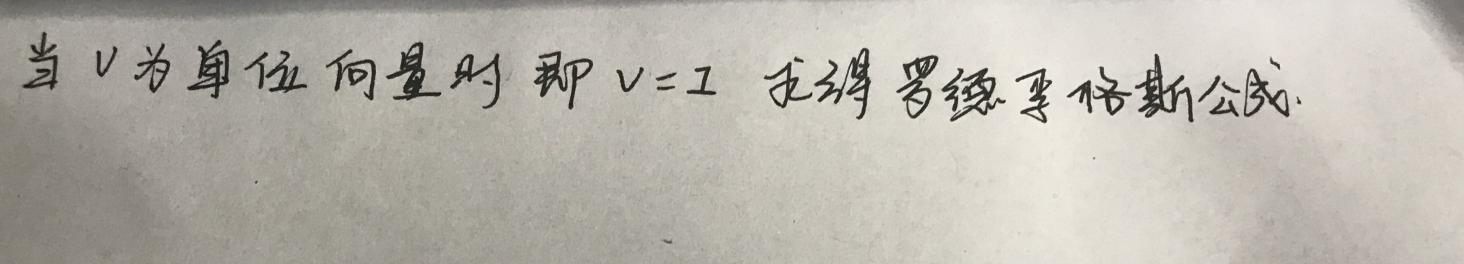 当 V 为单位向量时 即 V=I 求得罗德里格斯公式.